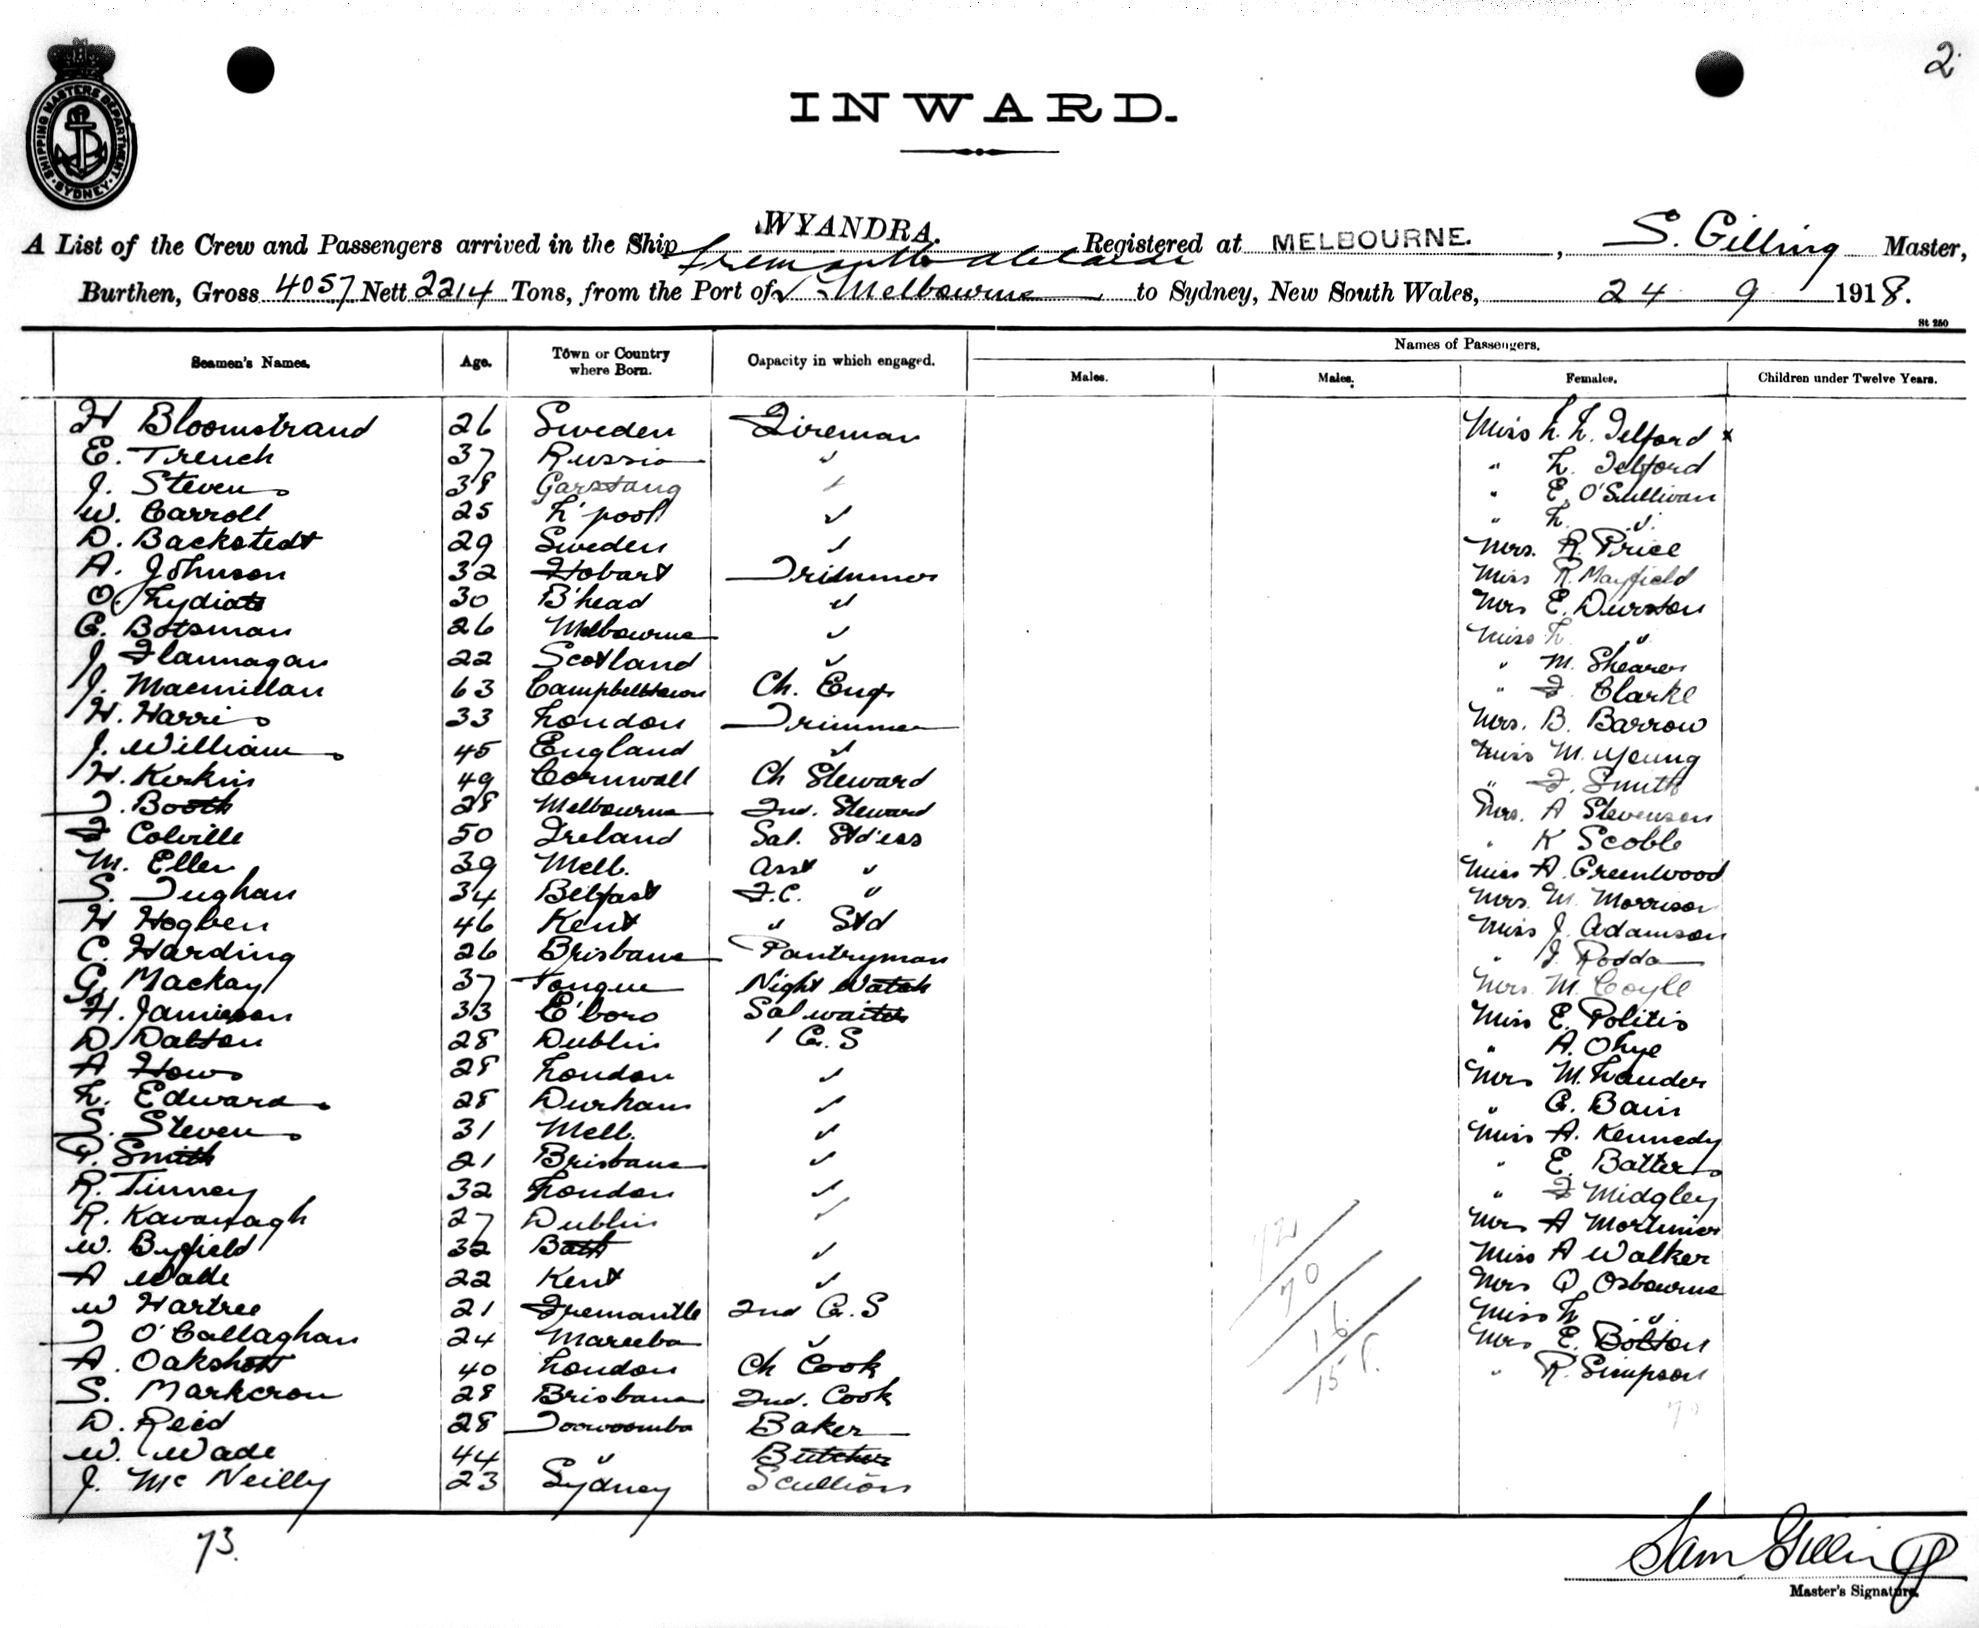 2
SHIPPING MASTERS DEPARTMENT SYDNEY
INWARD.
A List of the Crew and Passengers arrived in the Ship WYANDRA. Registered at MELBOURNE. , S. Gilling Master,
Fremantle Adelaide
Burthen, Gross 4057 Nett 2214 Tons, from the Port of Melbourne to Sydney, New South Wales, 24 9 1918.
St 250
Seamen's Names. Age. Town or Country where Born. Capacity in which engaged. Names of Passengers.
Males. Males. Females. Children under Twelve Years.
H Bloomstrand 26 Sweden Fireman Miss L. L. Telford x
E. Trench 37 Russia " " L. Telford
J. Stevens 38 Garstang " " E. O'Sullivan
W. Carroll 25 L'pool " " L. "
D. Backstedt 29 Sweden " Mrs. R. Price
A. Johnson 32 Hobart Trimmer Miss R. Mayfield
O. Lydiate 30 B'head " Mrs E. Durston
G. Botsman 26 Melbourne " Miss L. "
J Flannagan 22 Scotland " " M. Shearer
J. Macmillan 63 Campbelltown Ch. Engr " F. Clarke
H. Harris 33 London Trimmer Mrs. B. Barrow
J. Williams 45 England " Miss M. Young
H. Kirkin 49 Cornwall Ch Steward " F. Smith
T. Booth 28 Melbourne 2nd. Steward Mrs. A Stevenson
F Colville 50 Ireland Sal. Std'ess " K Scoble
M. Ellen 39 Melb. Asst " Miss A. Greenwood
S. Tughan 34 Belfast F.C. " Mrs. M. Morrison
H Hogben 46 Kent " Std Miss J. Adamson
C. Harding 26 Brisbane Pantryman " J. Rodda
G. Mackay 37 Tongue Night Watch Mrs. M. Coyle
H. Jamieson 33 E'boro Sal waiter Miss E. Politis
D Dalton 28 Dublin 1 G.S " A. Ohye
A Hows 28 London " Mrs M. Lauder
L. Edwards 28 Durham " " G. Bain
S. Stevens 31 Melb. " Miss A. Kennedy
P. Smith 21 Brisbane " " E. Batters
R. Tinney 32 London " " F Midgley
R. Kavanagh 27 Dublin " Mrs A Mortimer
W. Byfield 32 Bath " Miss A Walker
A Wade 22 Kent " Mrs O Osbourne
W Hartree 21 Fremantle 2nd G.S Miss L "
T O'Callaghan 24 Mareeba " Mrs E. Bolton
A. Oakshott 40 London Ch Cook " R. Simpson
S. Markcrow 28 Brisbane 2nd. Cook
D. Reid 28 Toowoomba Baker
W. Wade 44 " Butcher
J. McNeilly 23 Sydney Scullion
70
16
158
73.
Sam Gilling
Master's Signature.